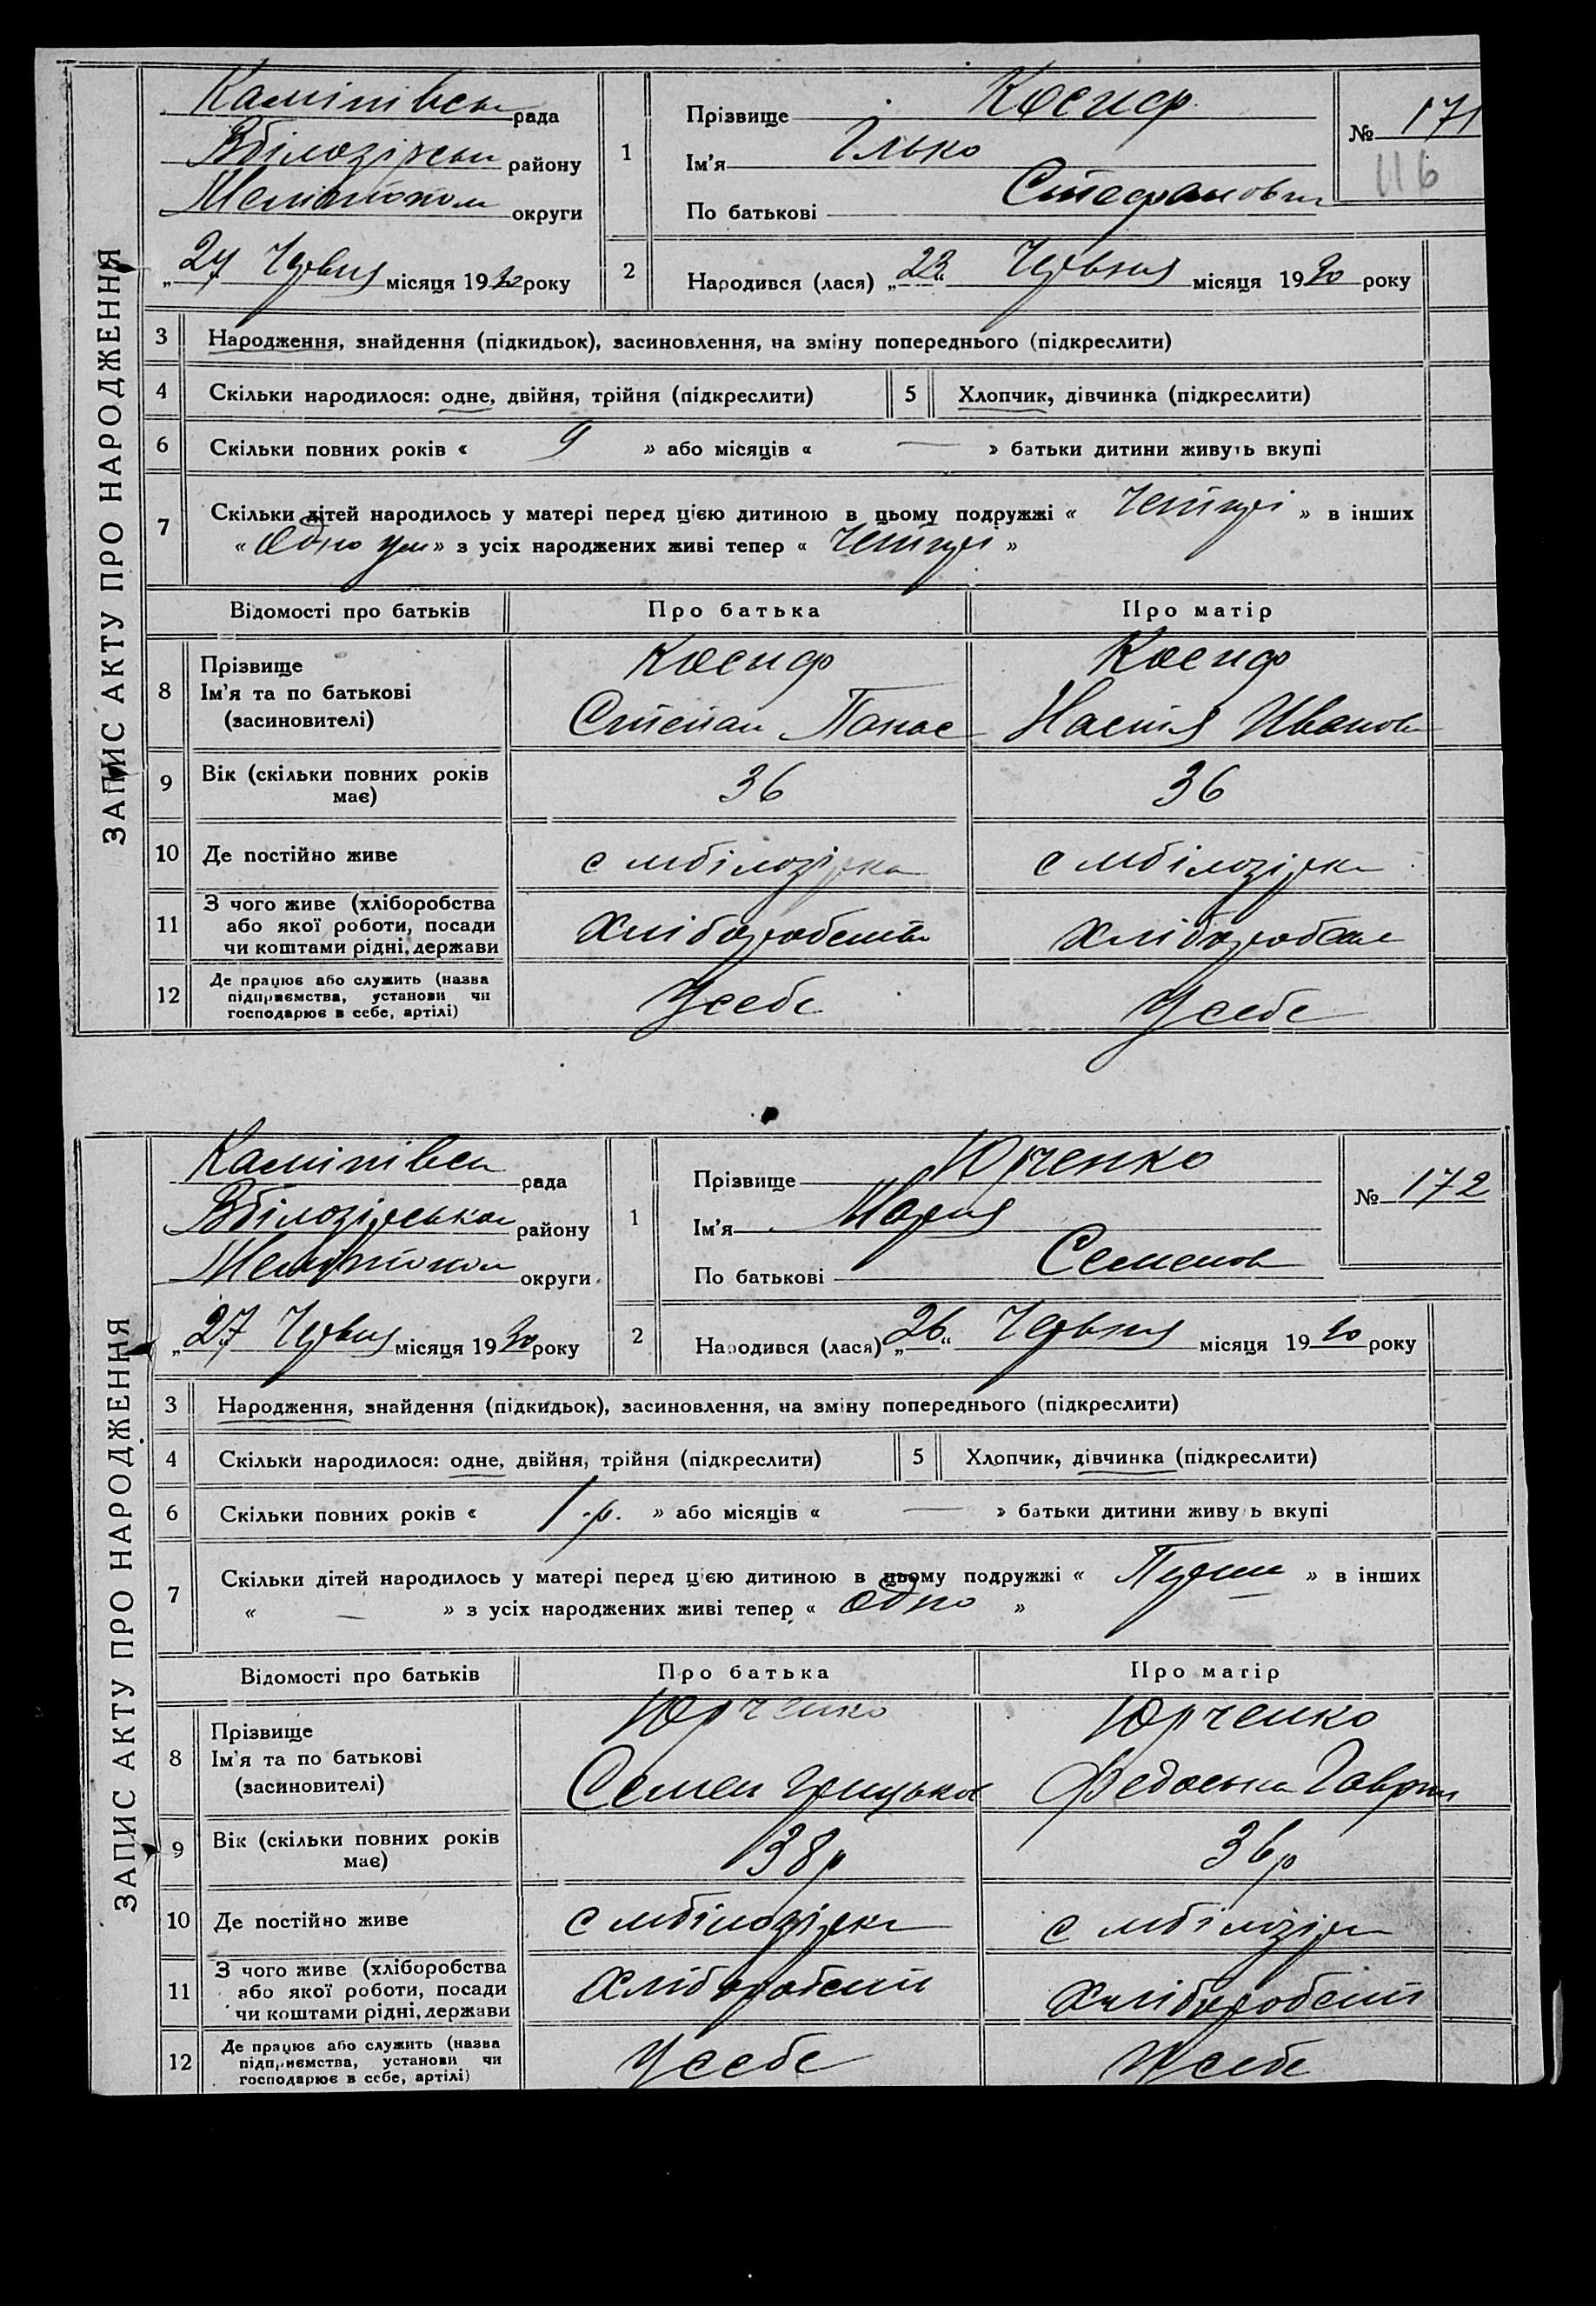 ЗАПИС АКТУ ПРО НАРОДЖЕННЯ
Камінівськ рада
Вбілозірськ району
Мелітополь округи
„27 Червня місяця 1930 року
1 Прізвище Косиф
Ім'я Ілько
По батькові Стефанович
№ 171
116
2 Народився (лася) „23“ Червня місяця 1930 року
3 Народження, знайдення (підкидьок), засиновлення, на зміну попереднього (підкреслити)
4 Скільки народилося: одне, двійня, трійня (підкреслити) 5 Хлопчик, дівчинка (підкреслити)
6 Скільки повних років « 9 » або місяців « — » батьки дитини живуть вкупі
7 Скільки дітей народилось у матері перед цією дитиною в цьому подружжі « Четирі » в інших
« Одно » з усіх народжених живі тепер « Четирі »
Відомості про батьків Про батька Про матір
8 Прізвище Косиф Косиф
Ім'я та по батькові Степан Панас Настя Иванов
(засиновителі)
9 Вік (скільки повних років має) 36 36
10 Де постійно живе с мбілозірка с мбілозірка
11 З чого живе (хліборобства або якої роботи, посади чи коштами рідні, держави Хліборобство Хліборобст
12 Де працює або служить (назва підприємства, установи чи господарює в себе, артілі) Усебе Усебе
ЗАПИС АКТУ ПРО НАРОДЖЕННЯ
Камінівськ рада
Вбілозірська району
Мелітополь округи
„27 Червня місяця 1930 року
1 Прізвище Юрченко
Ім'я Мария
По батькові Семенов
№ 172
2 Народився (лася) „26“ Червня місяця 1930 року
3 Народження, знайдення (підкидьок), засиновлення, на зміну попереднього (підкреслити)
4 Скільки народилося: одне, двійня, трійня (підкреслити) 5 Хлопчик, дівчинка (підкреслити)
6 Скільки повних років « 1 р. » або місяців « — » батьки дитини живуть вкупі
7 Скільки дітей народилось у матері перед цією дитиною в цьому подружжі « » в інших
« — » з усіх народжених живі тепер « Одно »
Відомості про батьків Про батька Про матір
8 Прізвище Юрченко Юрченко
Ім'я та по батькові Семен Грицьков Федоська Гаврил
(засиновителі)
9 Вік (скільки повних років має) 38 р 36 р
10 Де постійно живе с мбілозірка с мбілозірк
11 З чого живе (хліборобства або якої роботи, посади чи коштами рідні, держави Хліборобств Хліборобств
12 Де працює або служить (назва підприємства, установи чи господарює в себе, артілі) Усебе Усебе